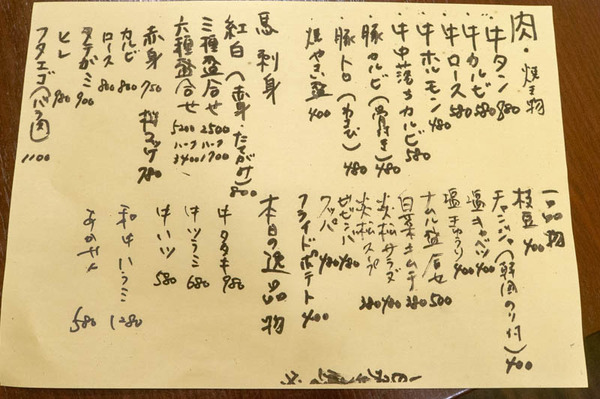 肉・焼き物
牛タン 980
牛カルビ 580
牛ロース 580
牛ホルモン 480
牛中落ちカルビ 580
豚カルビ(骨付き) 480
豚トロ(わさび) 480
焼やさい盛 400
馬刺身
紅白(赤身・たてがみ) 800
三種盛合せ 2500 ハーフ 1700
六種盛合せ 5200 ハーフ 3400
赤身 750
桜ユッケ 780
カルビ 800
ロース 800
タテガミ 900
ヒレ 980
フタエゴ(バラ肉) 1100
一品物
枝豆 400
チャンジャ(韓国のり付) 400
塩キャベツ 400
塩きゅうり 400
ナムル盛合せ 500
白菜キムチ 380
炎松サラダ 400
炎松スープ 380
ゼンバ 480
クッパ 480
フライドポテト 400
本日の逸品物
牛タタキ 980
牛ツラミ 680
牛ハツ 580
和牛いちご 1280
580